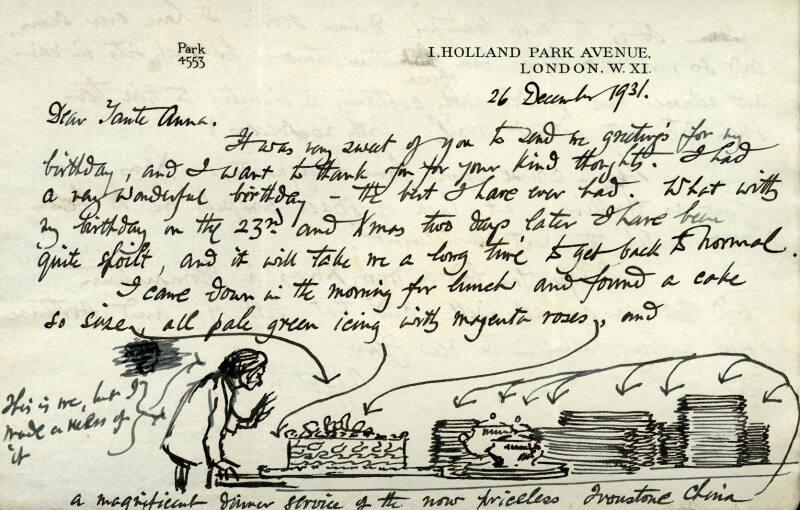 Park
4553
1, HOLLAND PARK AVENUE,
LONDON. W. XI.
26 December 1931.
Dear Tante Anna.
It was very sweet of you to send me greetings for my
birthday, and I want to thank you for your kind thoughts. I had
a very wonderful birthday – the best I have ever had. What with
my birthday on the 23rd and Xmas two days later I have been
quite spoilt, and it will take me a long time to get back to normal.
I came down in the morning for lunch and found a cake
so size, all pale green icing with magenta roses, and
This is me, but I
made a mess of
it
a magnificent dinner service of the now priceless Ironstone China